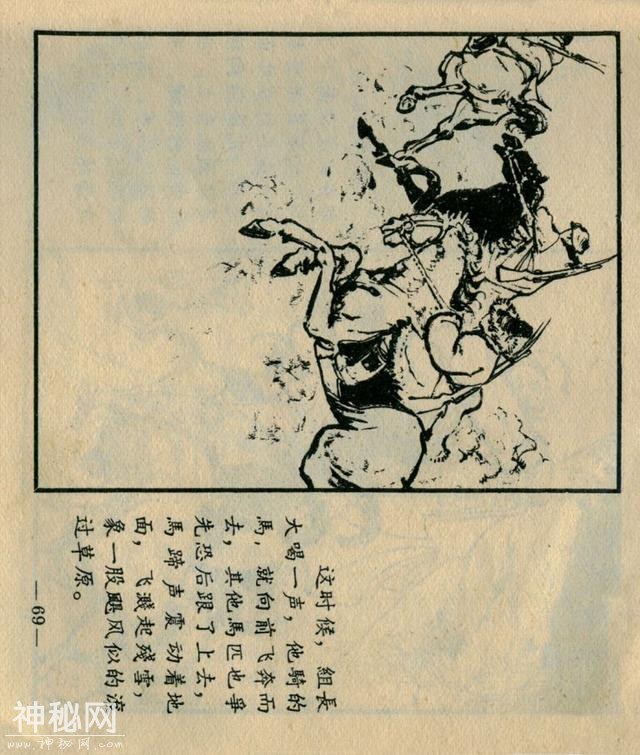 这时候，組長
大喝一声，他騎的
馬，就向前飞奔而
去，其他馬匹也爭
先恐后跟了上去，
馬蹄声震动着地
面，飞溅起殘雪，
象一股飈风似的流
过草原。
—69—
神秘网
www.shenmiwang.com